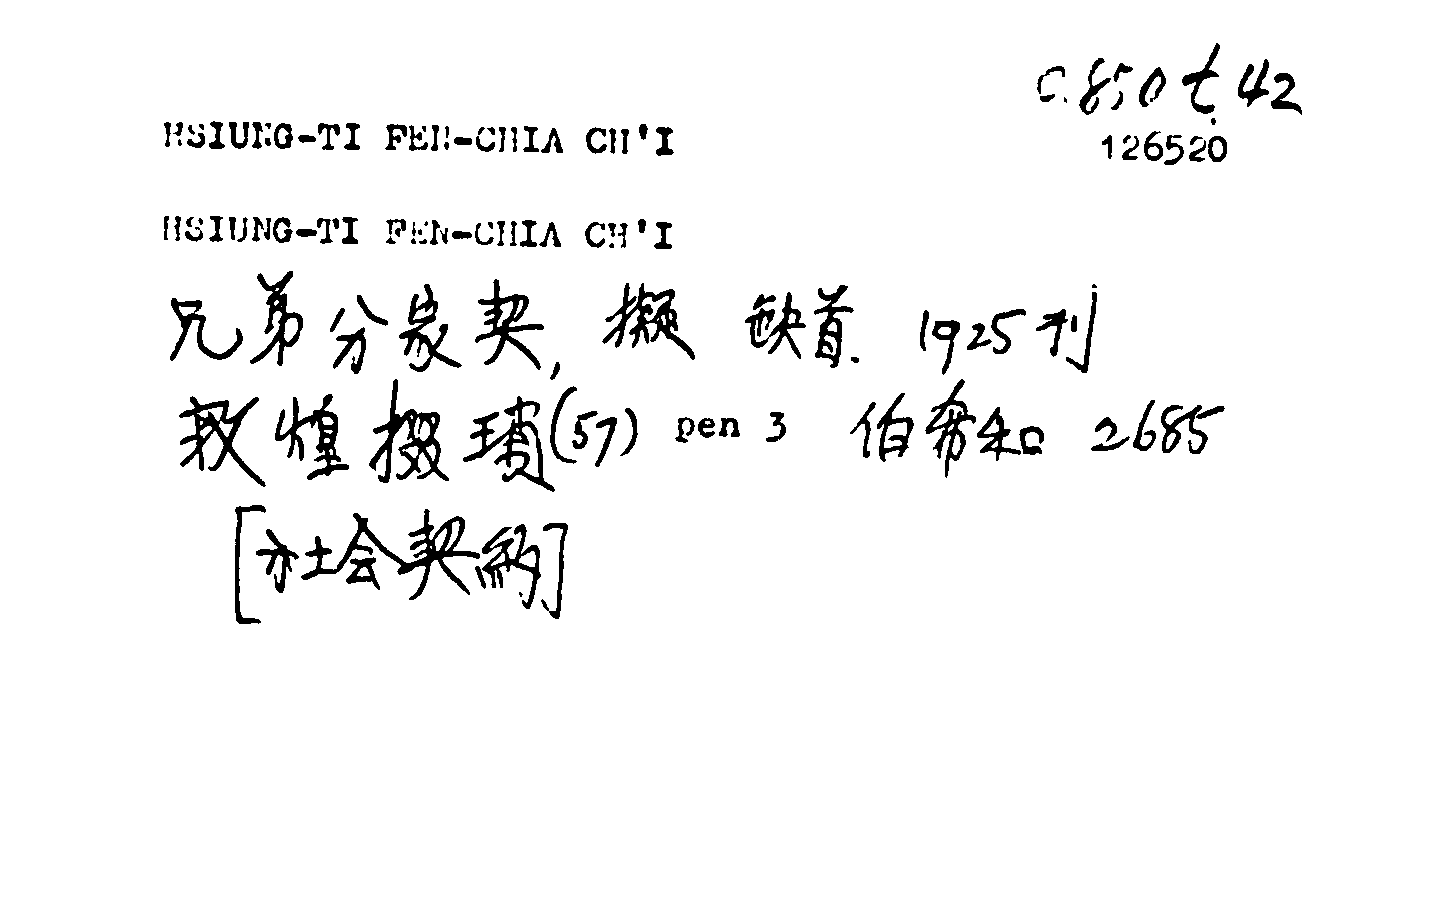 C.850 t.42
126520
HSIUNG-TI FEN-CHIA CH'I
HSIUNG-TI FEN-CHIA CH'I
兄弟分家契, 擬 缺首. 1925刊
敦煌掇瑣(57) pen 3 伯希和 2685
[社会契約]